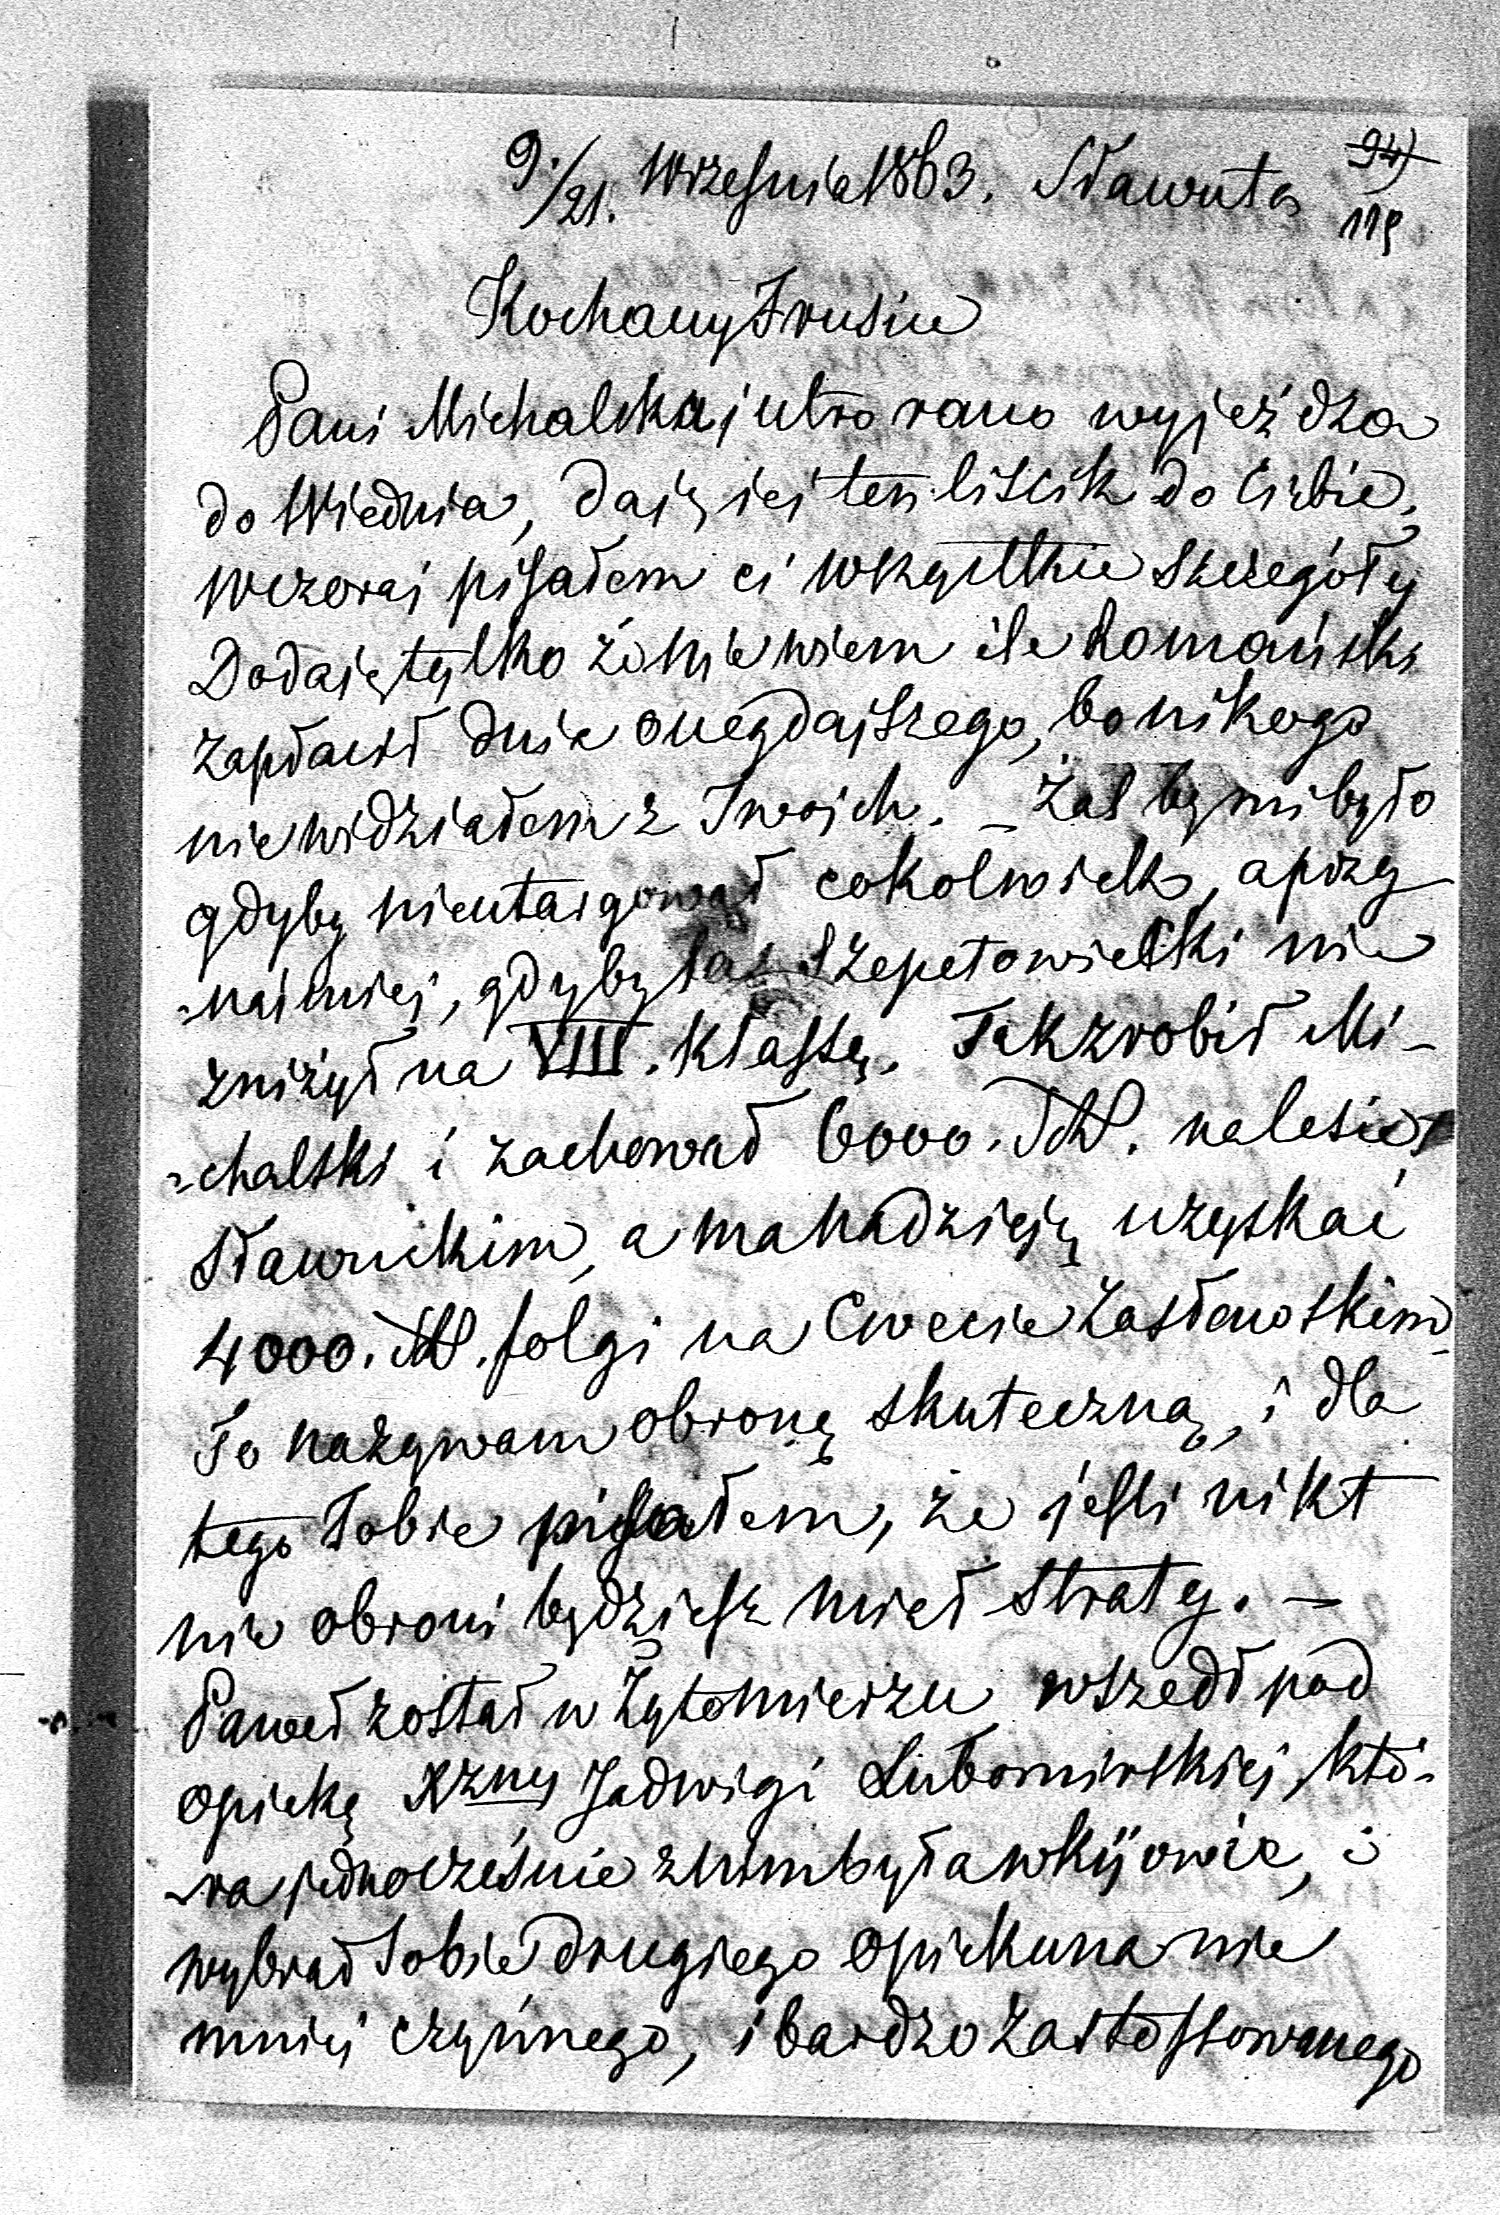 9./21. Września 1863. Sławuta
94)
119
Kochany Frusiu
Pani Michalska jutro rano wyjeżdża
do Wiednia, daję jej ten liścik do Ciebie,
wczoraj pisałem ci wszystkie szczegóły
Dodaję tylko że nie wiem ile Romański
zapłacił dnia onegdajszego, bo nikogo
nie widziałem z Twoich. – Żal by mi było
gdyby nieutargował cokolwiek, a przy
-najmniej, gdyby las Szepetowiecki nie
zniżył na VIII. klassę. Tak zrobił Mi-
-chalski i zachował 6000. na lesie
Sławuckim, a ma nadzieję uzyskać
4000. folgi na Cwecie Zasławskim
To nazywam obroną skuteczną, i dla
tego Tobie pisałem, że jeśli nikt
nie obroni będziesz miał straty. –
Paweł został w Żytomierzu wszedł pod
opiekę Xżnej Jadwigi Lubomirskiej, któ-
-ra jednocześnie z nim była w Kijowie, i
wybrał sobie drugiego opiekuna nie
mniej czynnego, i bardzo zastossowanego